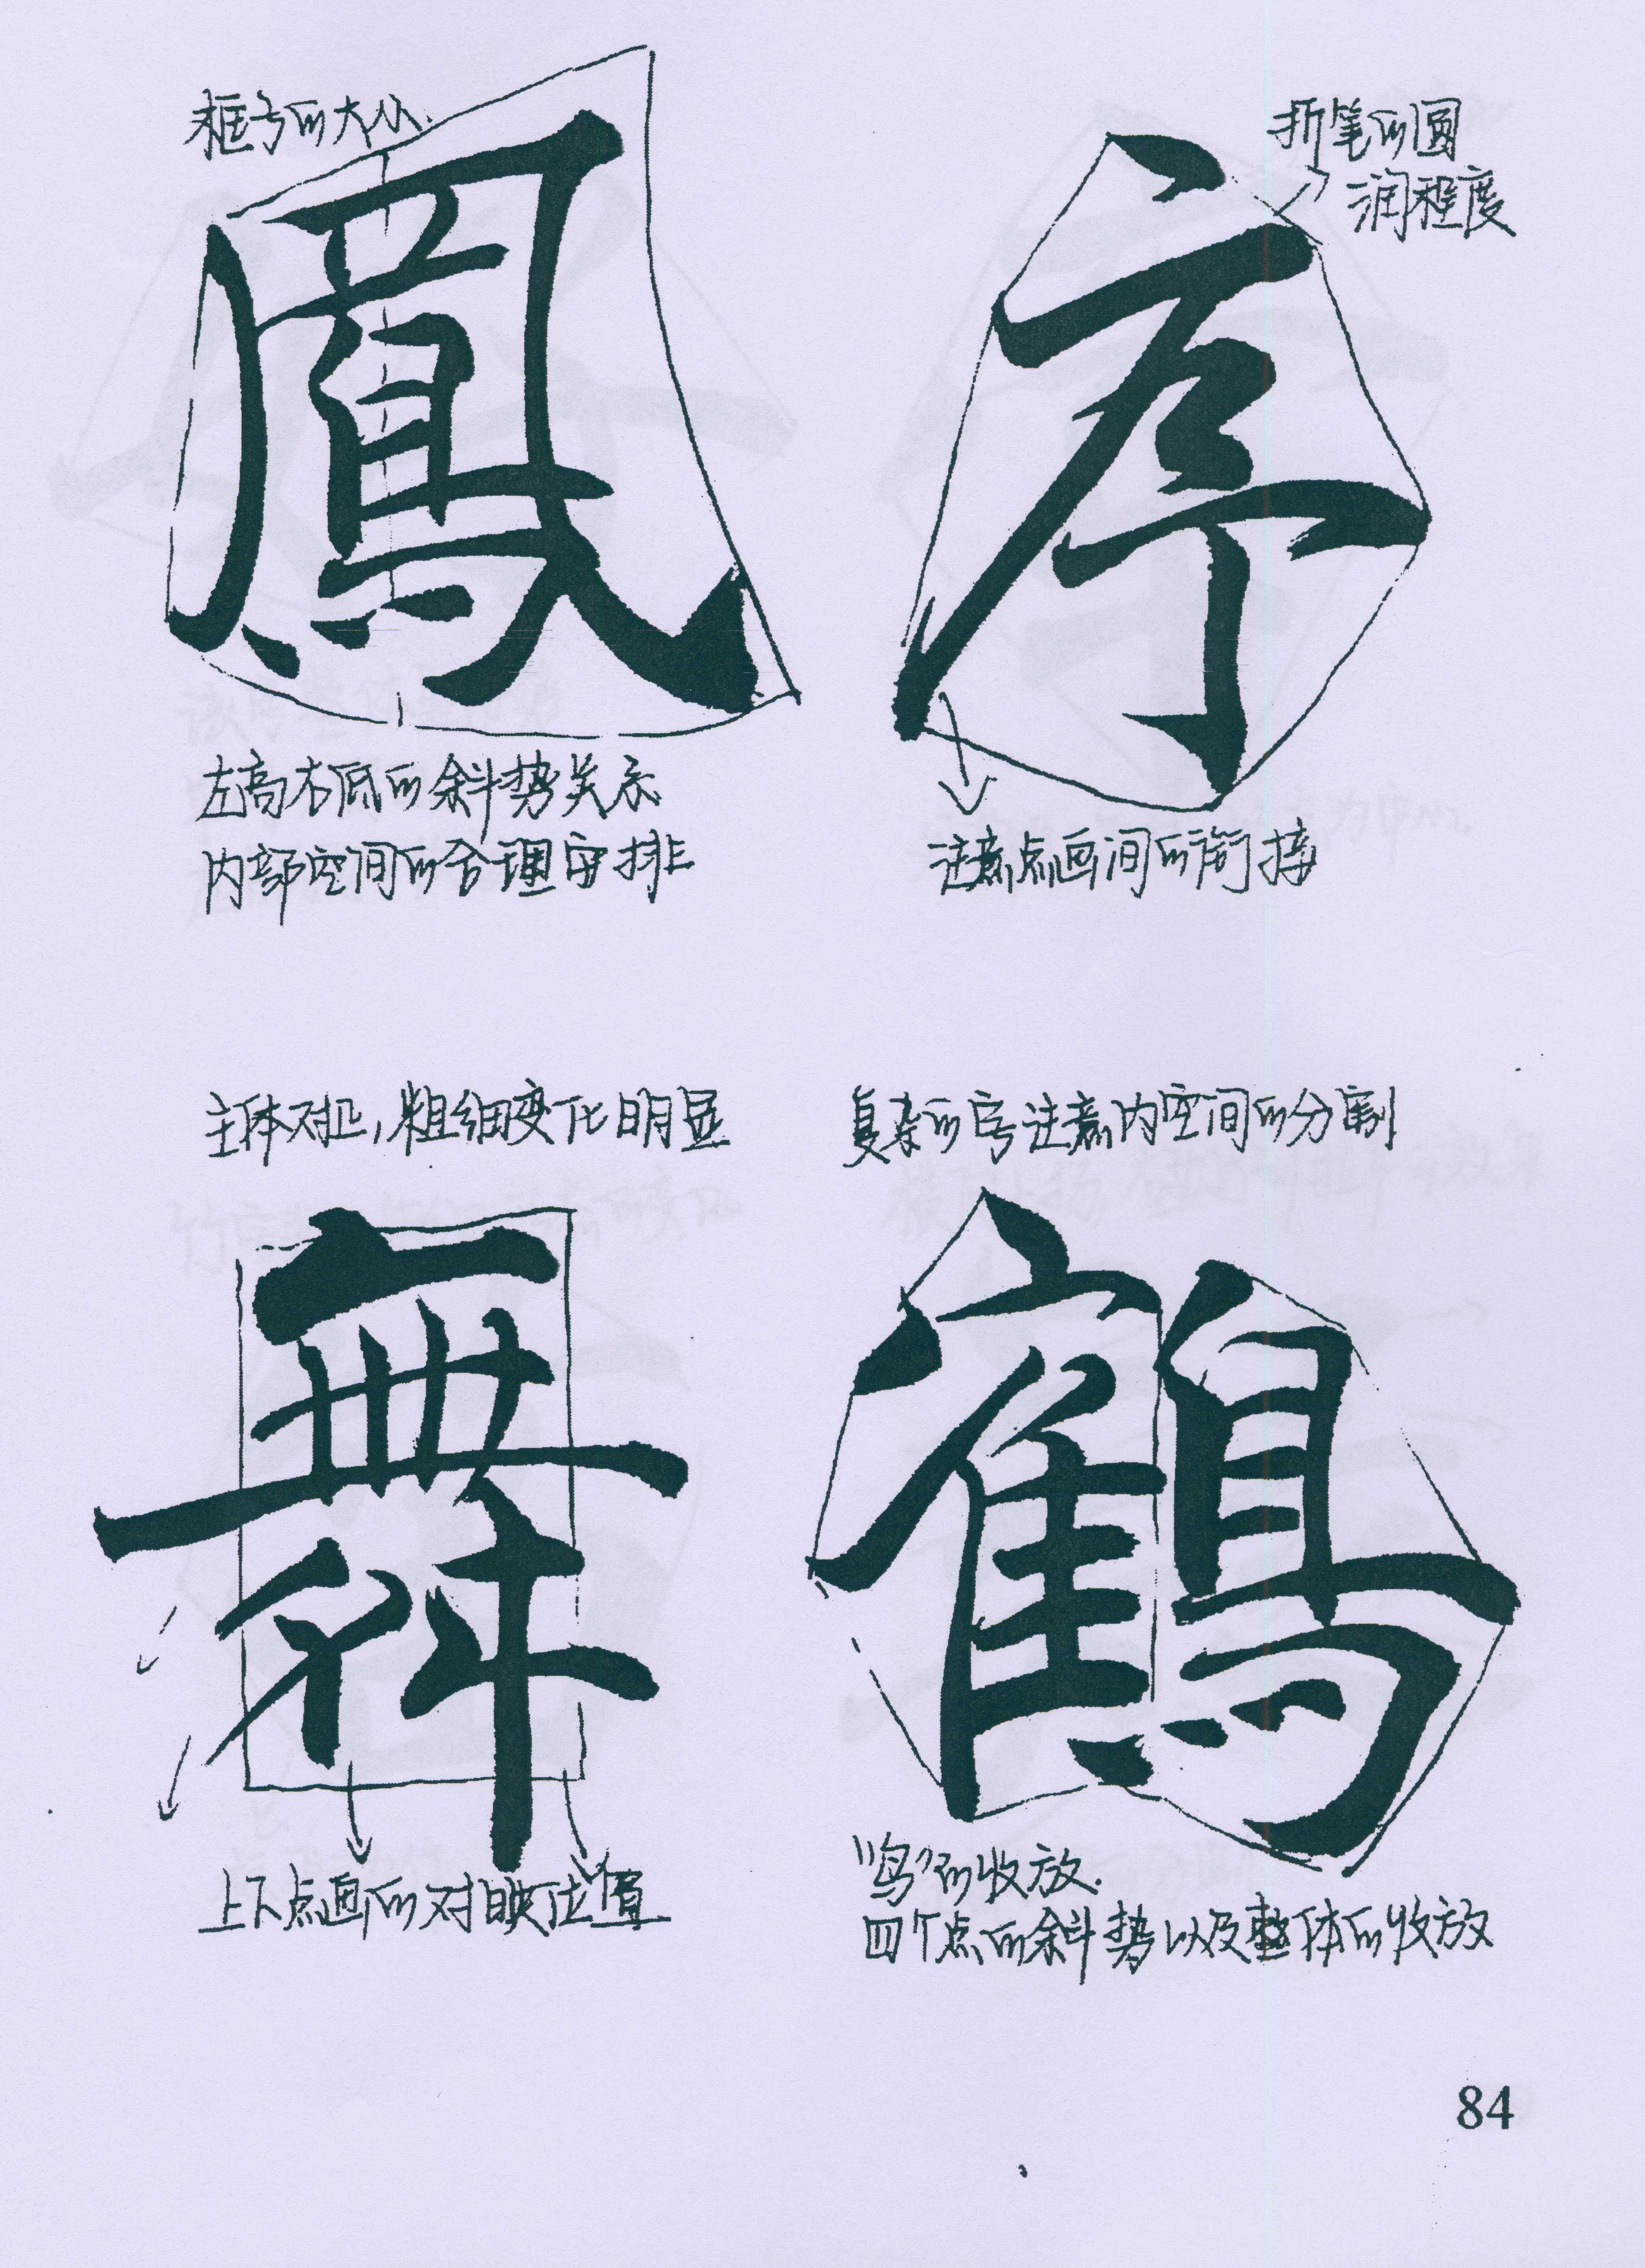 框子的大小.
鳳
左高右低的斜势关系
内部空间的合理安排
折笔的圆
润程度
序
注意点画间的衔接
主体对正,粗细变化明显
舞
上下点画的对映位置
复杂的字注意内空间的分割
鶴
"鸟"的收放.
四个点的斜势以及整体的收放
84